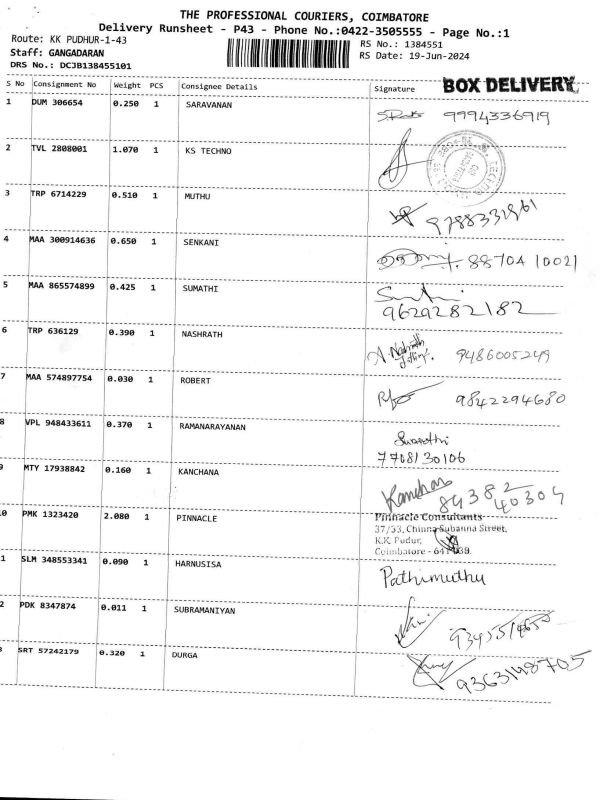 THE PROFESSIONAL COURIERS, COIMBATORE
Delivery Runsheet - P43 - Phone No.:0422-3505555 - Page No.:1
Route: KK PUDHUR-1-43
RS No.: 1384551
Staff: GANGADARAN
RS Date: 19-Jun-2024
DRS No.: DCJB138455101
BOX DELIVERY
S No Consignment No Weight PCS Consignee Details Signature
1 DUM 306654 0.250 1 SARAVANAN 9994336919
2 TVL 2808001 1.070 1 KS TECHNO
3 TRP 6714229 0.510 1 MUTHU
4 MAA 300914636 0.650 1 SENKANI 88704 10021
5 MAA 865574899 0.425 1 SUMATHI
9629282182
6 TRP 636129 0.390 1 NASHRATH A. Nashrath 9486005249
7 MAA 574897754 0.030 1 ROBERT 9842294680
8 VPL 948433611 0.370 1 RAMANARAYANAN
7708130106
9 MTY 17938842 0.160 1 KANCHANA Kanchana 84382
40304
0 PMK 1323420 2.080 1 PINNACLE Pinnacle Consultants
37/33, Chinna Subanna Street,
K.K. Pudur,
Coimbatore -
1 SLM 348553341 0.090 1 HARNUSISA Pathimuthu
2 PDK 8347874 0.011 1 SUBRAMANIYAN
3 SRT 57242179 0.320 1 DURGA 9363148705